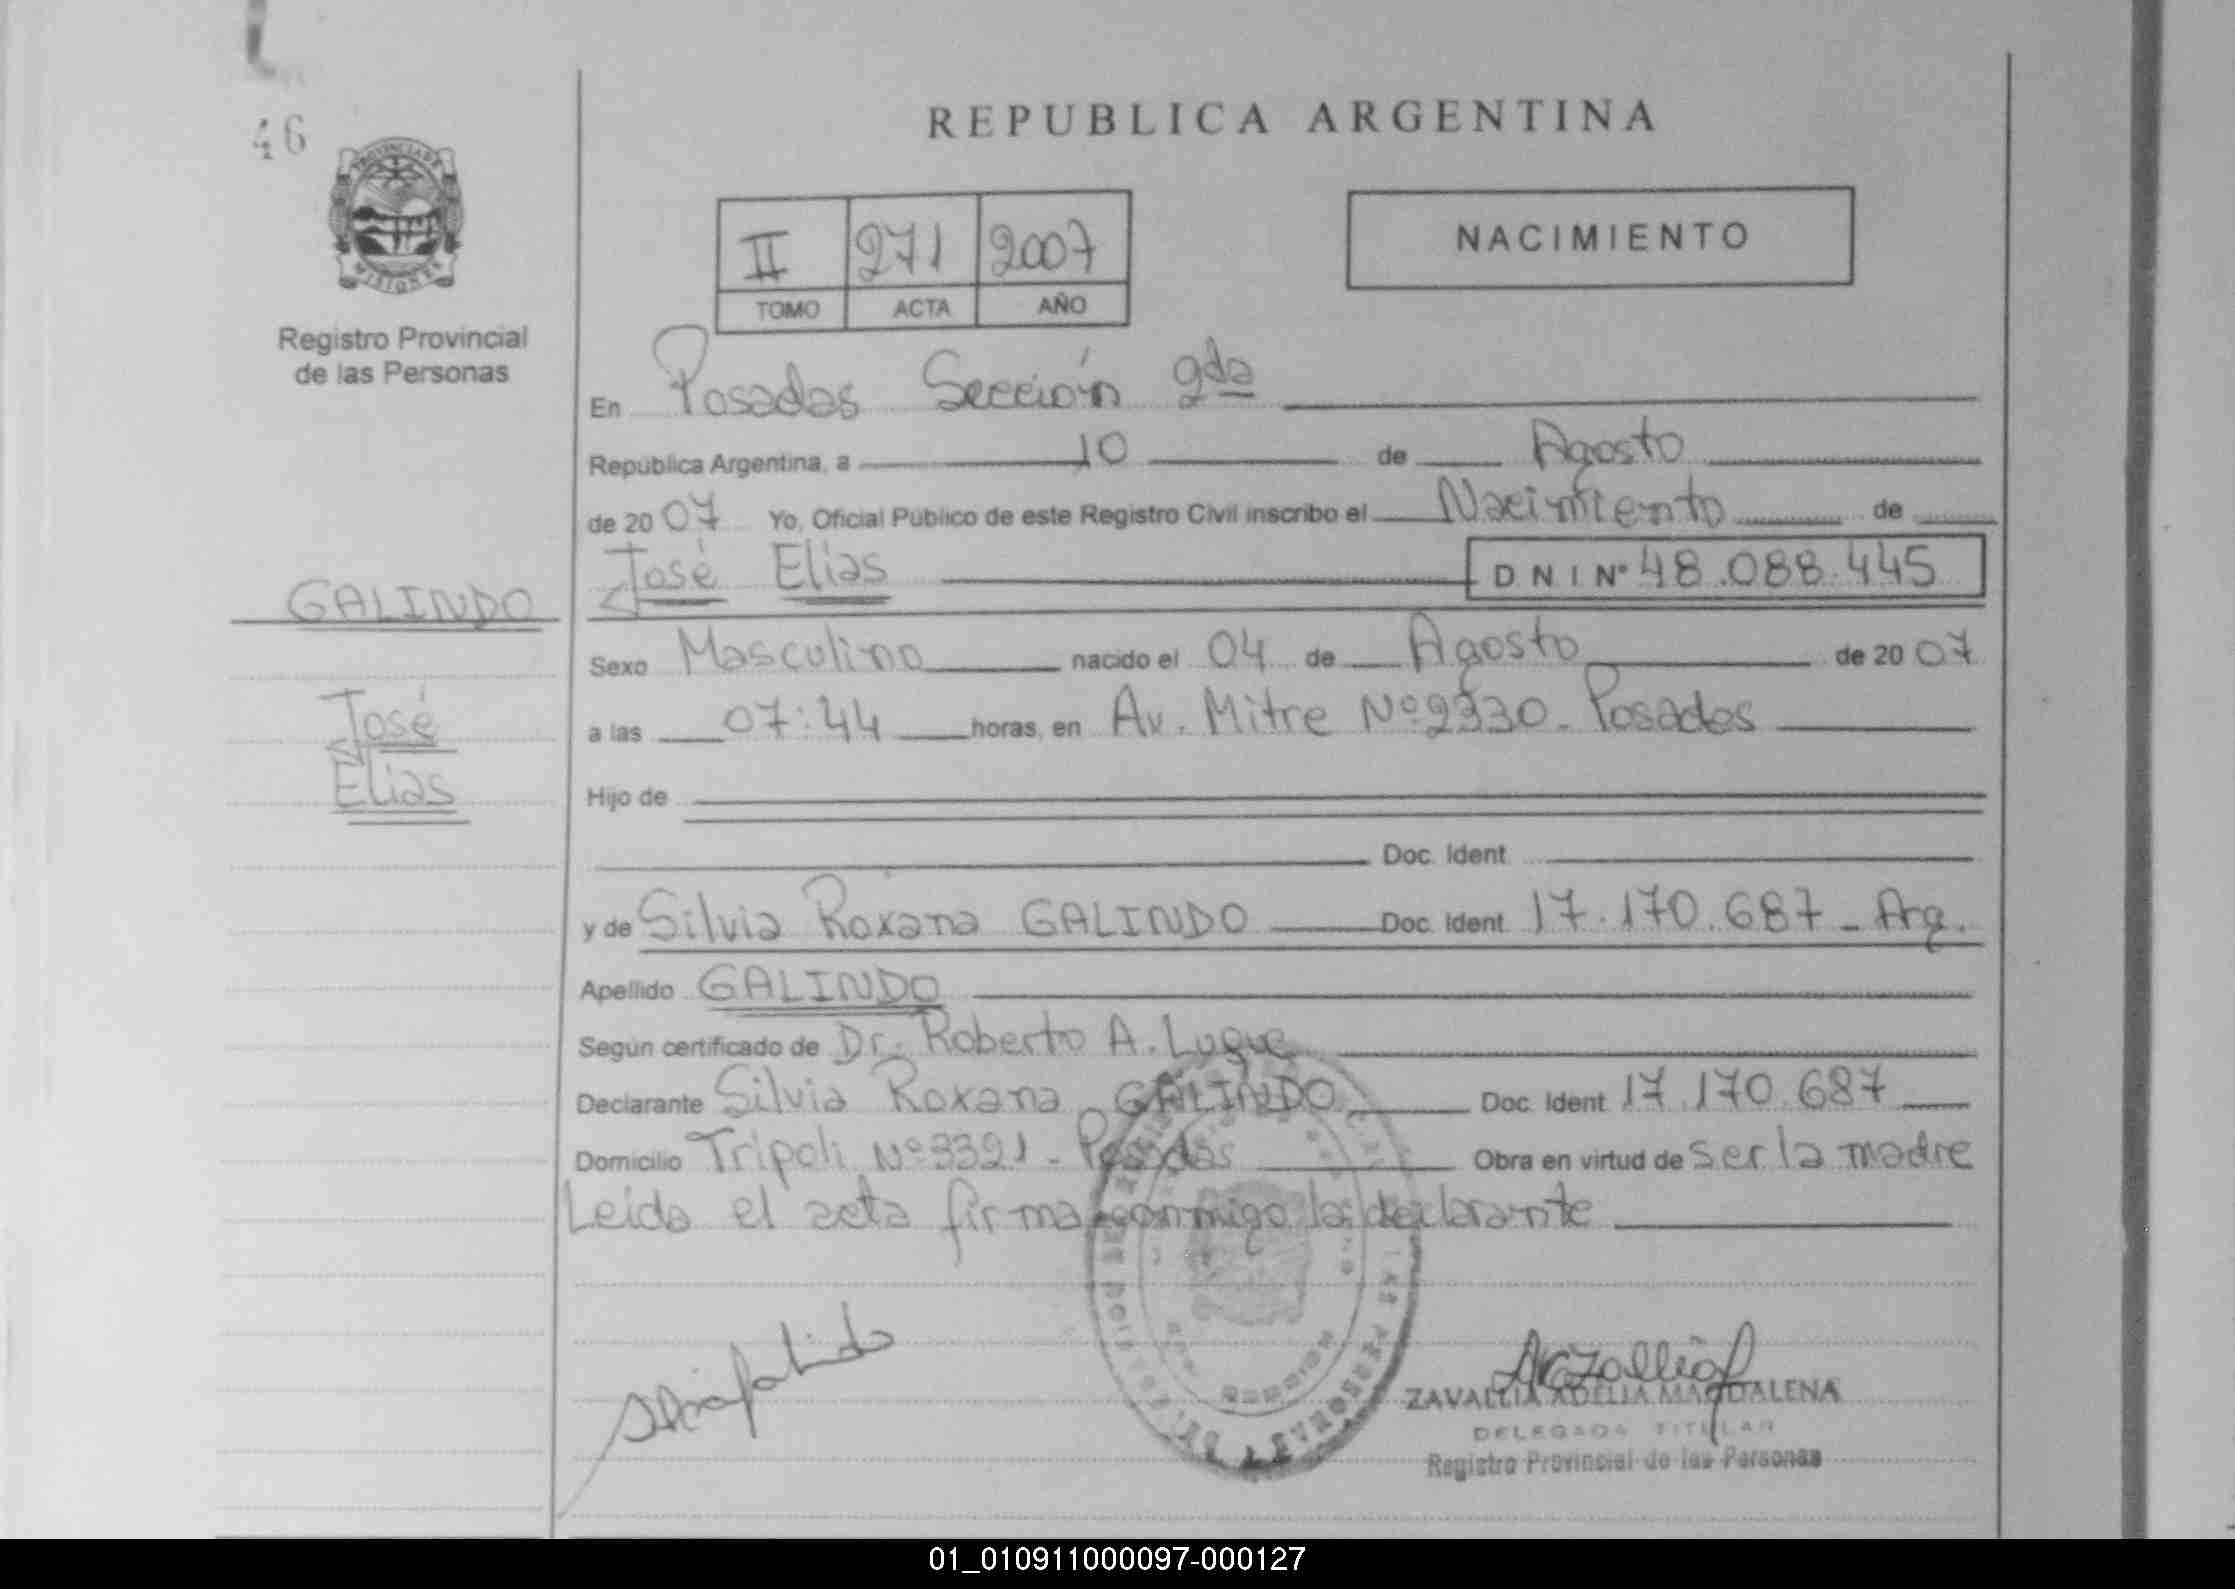 46
PROVINCIA DE
MISIONES
Registro Provincial
de las Personas
GALINDO
José
Elias
REPUBLICA ARGENTINA
II 271 2007
TOMO ACTA AÑO
NACIMIENTO
En Posadas Sección 2da
República Argentina, a 10 de Agosto
de 2007 Yo, Oficial Público de este Registro Civil inscribo el Nacimiento de
José Elias DNI Nº 48.088.445
Sexo Masculino nacido el 04 de Agosto de 2007
a las 07:44 horas, en Av. Mitre Nº 2330 - Posadas
Hijo de
Doc. Ident.
y de Silvia Roxana GALINDO Doc. Ident. 17.170.687 - Arg.
Apellido GALINDO
Según certificado de Dr. Roberto A. Luque
Declarante Silvia Roxana GALINDO Doc. Ident. 17.170.687
Domicilio Trípoli Nº 3321 - Posadas Obra en virtud de ser la madre
Leída el acta firma conmigo la declarante
ZAVALLIA ADELIA MAGDALENA
DELEGADA TITULAR
Registro Provincial de las Personas
01_010911000097-000127